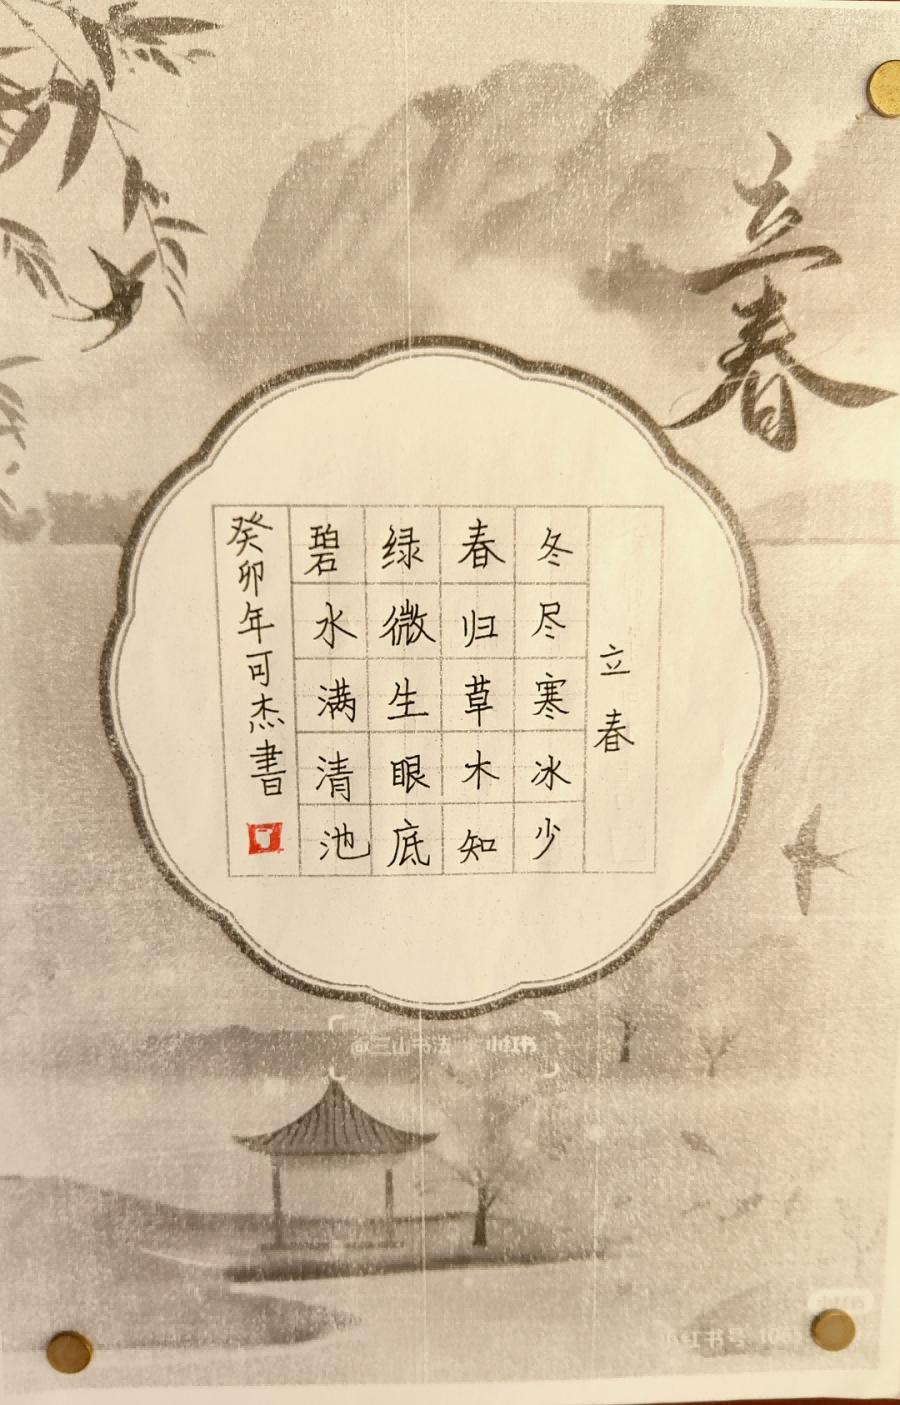 立春
立春
冬尽寒冰少
春归草木知
绿微生眼底
碧水满清池
癸卯年可杰書
@三山书法 小红书
小红书号